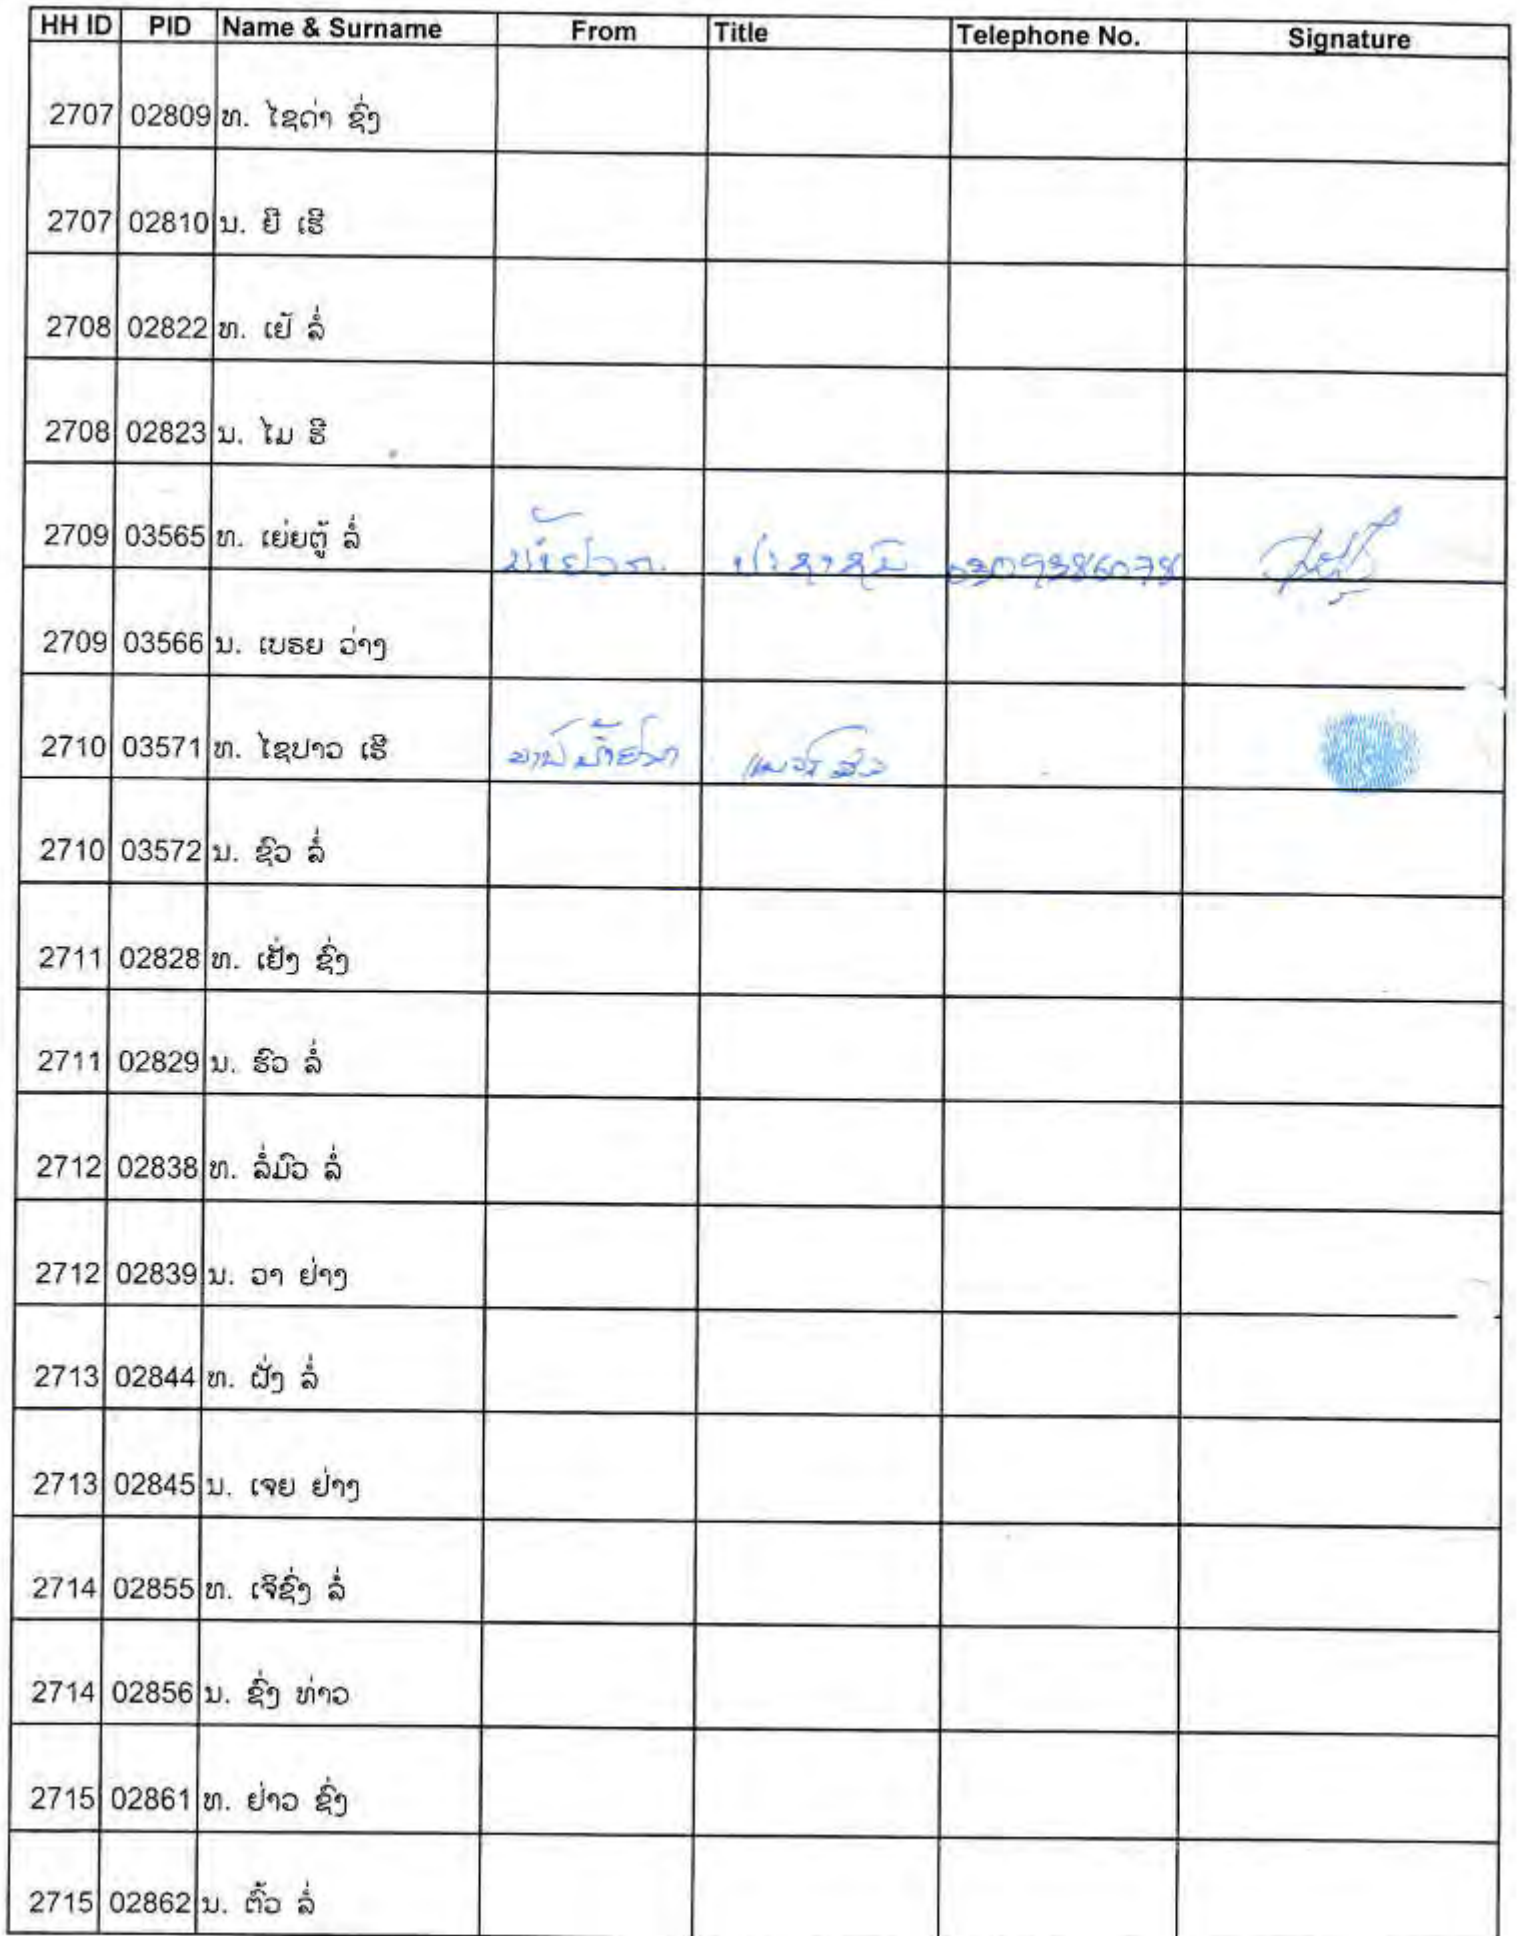 HH ID PID Name & Surname From Title Telephone No. Signature
2707 02809 ທ. ໄຊດ່າ ຊົ່ງ
2707 02810 ນ. ຍີ ເຮີ
2708 02822 ທ. ເຢັ ລໍ່
2708 02823 ນ. ໄມ ຮີ
2709 03565 ທ. ເຍ່ຍຕູ້ ລໍ່ ປະຊາຊົນ 0309386078
2709 03566 ນ. ເບຣຍ ວ່າງ
2710 03571 ທ. ໄຊປາວ ເຮີ
2710 03572 ນ. ຊົວ ລໍ່
2711 02828 ທ. ເຢັ່ງ ຊົ່ງ
2711 02829 ນ. ຣົວ ລໍ່
2712 02838 ທ. ລໍ່ມົວ ລໍ່
2712 02839 ນ. ວາ ຢ່າງ
2713 02844 ທ. ຝັ່ງ ລໍ່
2713 02845 ນ. ເຈຍ ຢ່າງ
2714 02855 ທ. ເຈີຊົ່ງ ລໍ່
2714 02856 ນ. ຊົ່ງ ທ່າວ
2715 02861 ທ. ຢ່າວ ຊົ່ງ
2715 02862 ນ. ຕົ້ວ ລໍ່